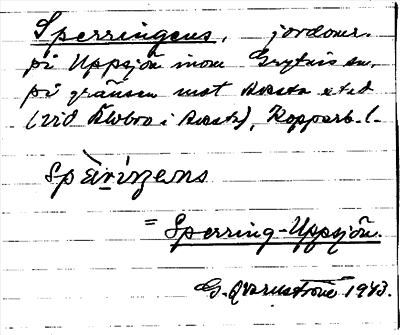 Sperringens, jordomr.
på Uppsjön inom Grytnäs sn,
på gränsen mot Avesta etc
(vid Klobro i Avesta), Kopparb. l.
Spärinzens
= Sperring-Uppsjön.
G. Qvarnström 1943.